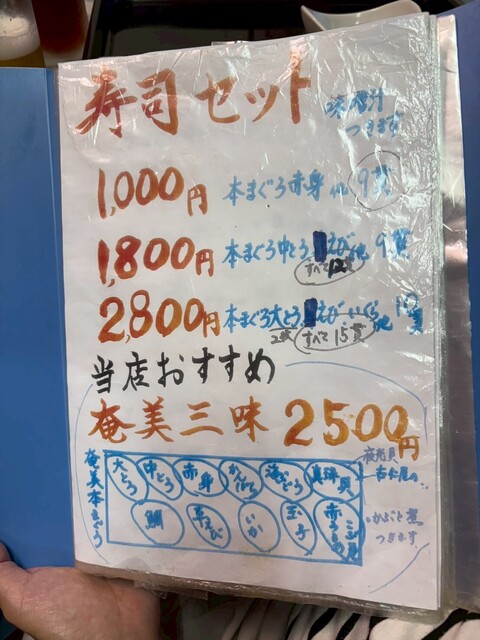 寿司セット
味噌汁
つきます
1,000円 本まぐろ赤身 他 9貫
1,800円 本まぐろ中とろ えび 他 9貫
すべて12貫
2,800円 本まぐろ大とろ えび いくら 他
2貫 すべて15貫
当店おすすめ
奄美三味 2500円
奄美本まぐろ
大とろ 中とろ 赤身 真珠貝
鯛 えび いか 玉子
夜光貝
かぶと煮
つきます